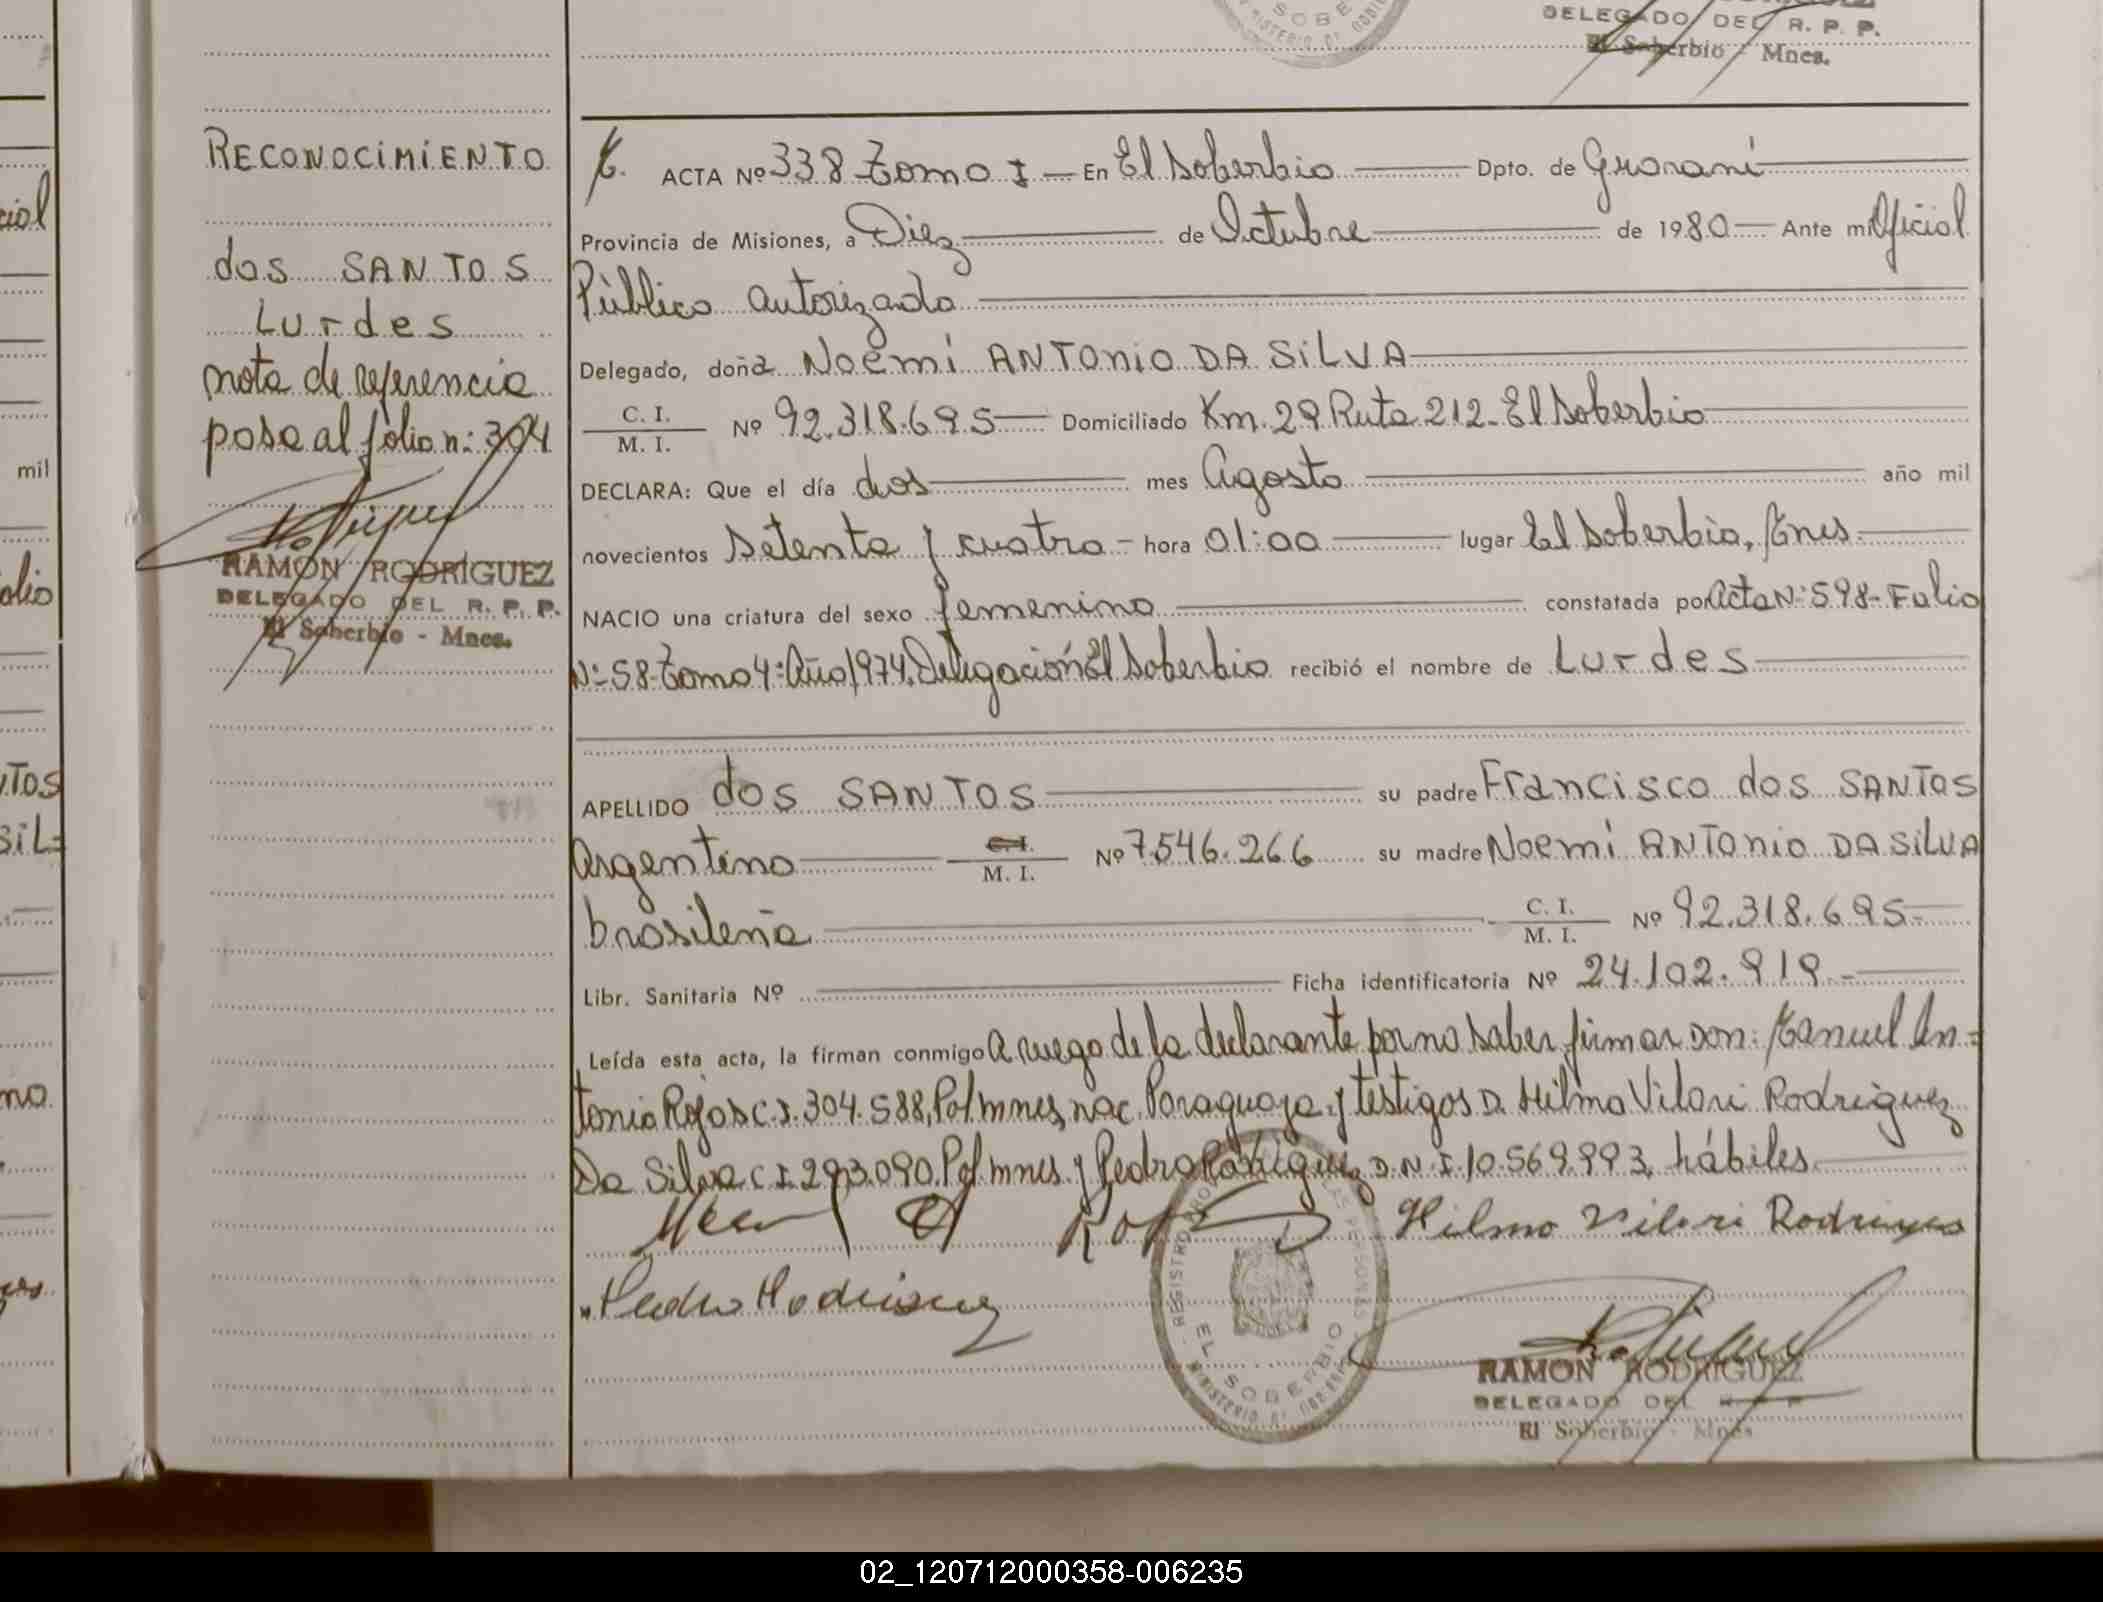 DELEGADO DEL R. P. P.
El Soberbio - Mnes.
RECONOCIMIENTO
dos SANTOS
Lurdes
nota de referencia
pasa al folio n: 304
RAMON RODRIGUEZ
DELEGADO DEL R. P. P.
El Soberbio - Mnes.
ACTA Nº 338 Tomo I — En El Soberbio — Dpto. de Guaraní
Provincia de Misiones, a Diez de Octubre de 1980 — Ante mi Oficial
Público autorizado
Delegado, doña Noemí ANTONIO DA SILVA
C. I.
M. I. Nº 92.318.695 — Domiciliado Km. 29 Ruta 212 - El Soberbio
DECLARA: Que el día dos mes Agosto año mil
novecientos Setenta y cuatro - hora 01:00 lugar El Soberbio, Mnes
NACIO una criatura del sexo femenino constatada por Acta N: 598 - Folio
N: 58 - Tomo 4: Año 1974, Delegación El Soberbio recibió el nombre de Lurdes
APELLIDO dos SANTOS su padre Francisco dos SANTOS
Argentino C. I.
M. I. Nº 7.546.266 su madre Noemí ANTONIO DA SILVA
brasileña C. I.
M. I. Nº 92.318.695-
Libr. Sanitaria Nº Ficha identificatoria Nº 24.102.919.-
Leída esta acta, la firman conmigo A ruego de la declarante por no saber firmar Don: Manuel An=
tonio Rojas C.I. 304.588, Pol. mnes, nac. Paraguaya, y testigos D. Hilmo Vilari Rodriguez
Da Silva C.I. 293.090. Pol. mnes y Pedro Rodriguez D.N.I. 10.569.993, hábiles
Hilmo Vilari Rodrigues
Pedro Rodriguez
REGISTRO LAS PERSONAS
EL SOBERBIO
MINISTERIO DE GOBIERNO
RAMON RODRIGUEZ
DELEGADO DEL R. P. P.
El Soberbio - Mnes
mil
02_120712000358-006235